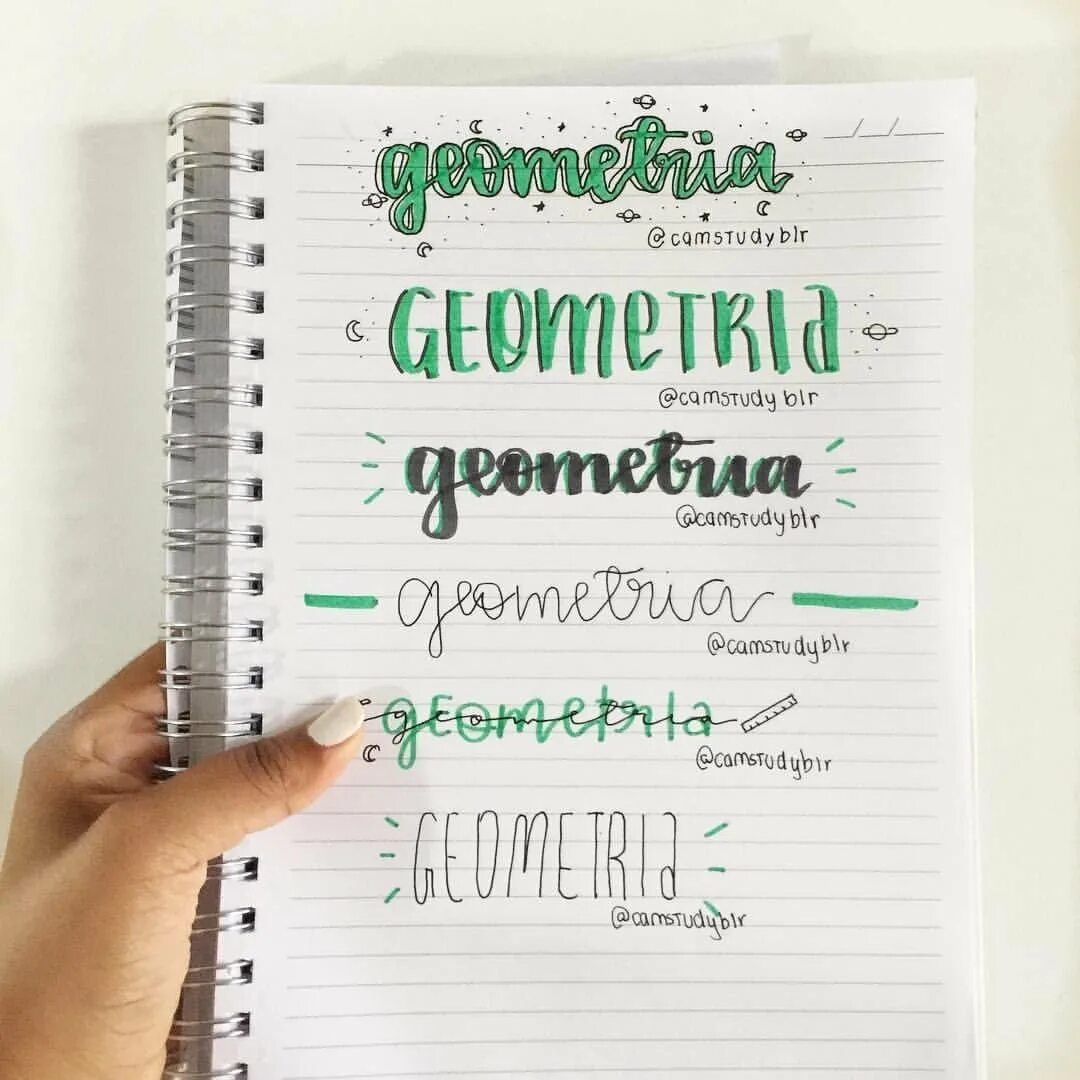 geometria
@camstudyblr
GEOMETRIA
@camstudyblr
geometria
@camstudyblr
geometria
@camstudyblr
geometria
geometria
@camstudyblr
GEOMETRIA
@camstudyblr